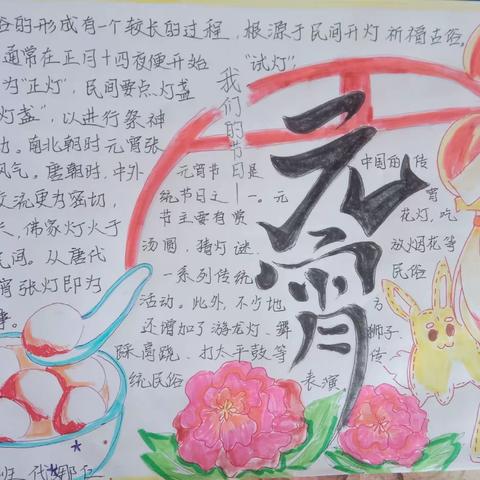 俗的形成有一个较长的过程，根源于民间开灯祈福古俗。
通常在正月十四夜便开始 "试灯"
为"正灯"，民间要点灯盏
灯盏"，以进行祭神
动。南北朝时元宵张
风气。唐朝时，中外
交流更为密切，
佛家灯火于
民间。从唐代
宵张灯即为
事。
我们的节日
元宵
元宵节是 中国的传
统节日之一。元 宵
节主要有赏 花灯、吃
汤圆，猜灯谜、 放烟花等
一系列传统 民俗
活动。此外，不少地 方
还增加了游龙灯、舞 狮子、
踩高跷、打太平鼓等 传
统民俗 表演。
班